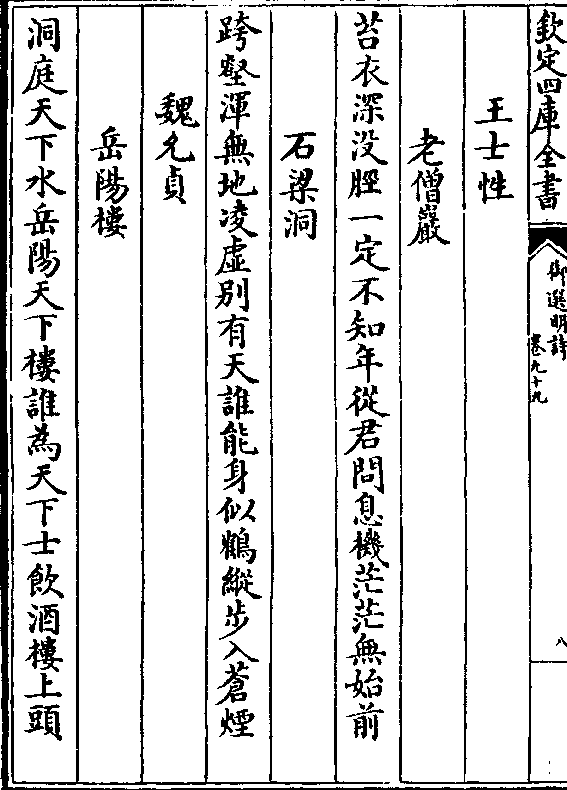 欽定四庫全書
御選明詩
卷九十九
八
王士性
老僧巖
苔衣深没脛一定不知年從君問息機茫茫無始前
石梁洞
跨壑渾無地凌虛别有天誰能身似鶴縱步入蒼煙
魏允貞
岳陽樓
洞庭天下水岳陽天下樓誰為天下士飲酒樓上頭